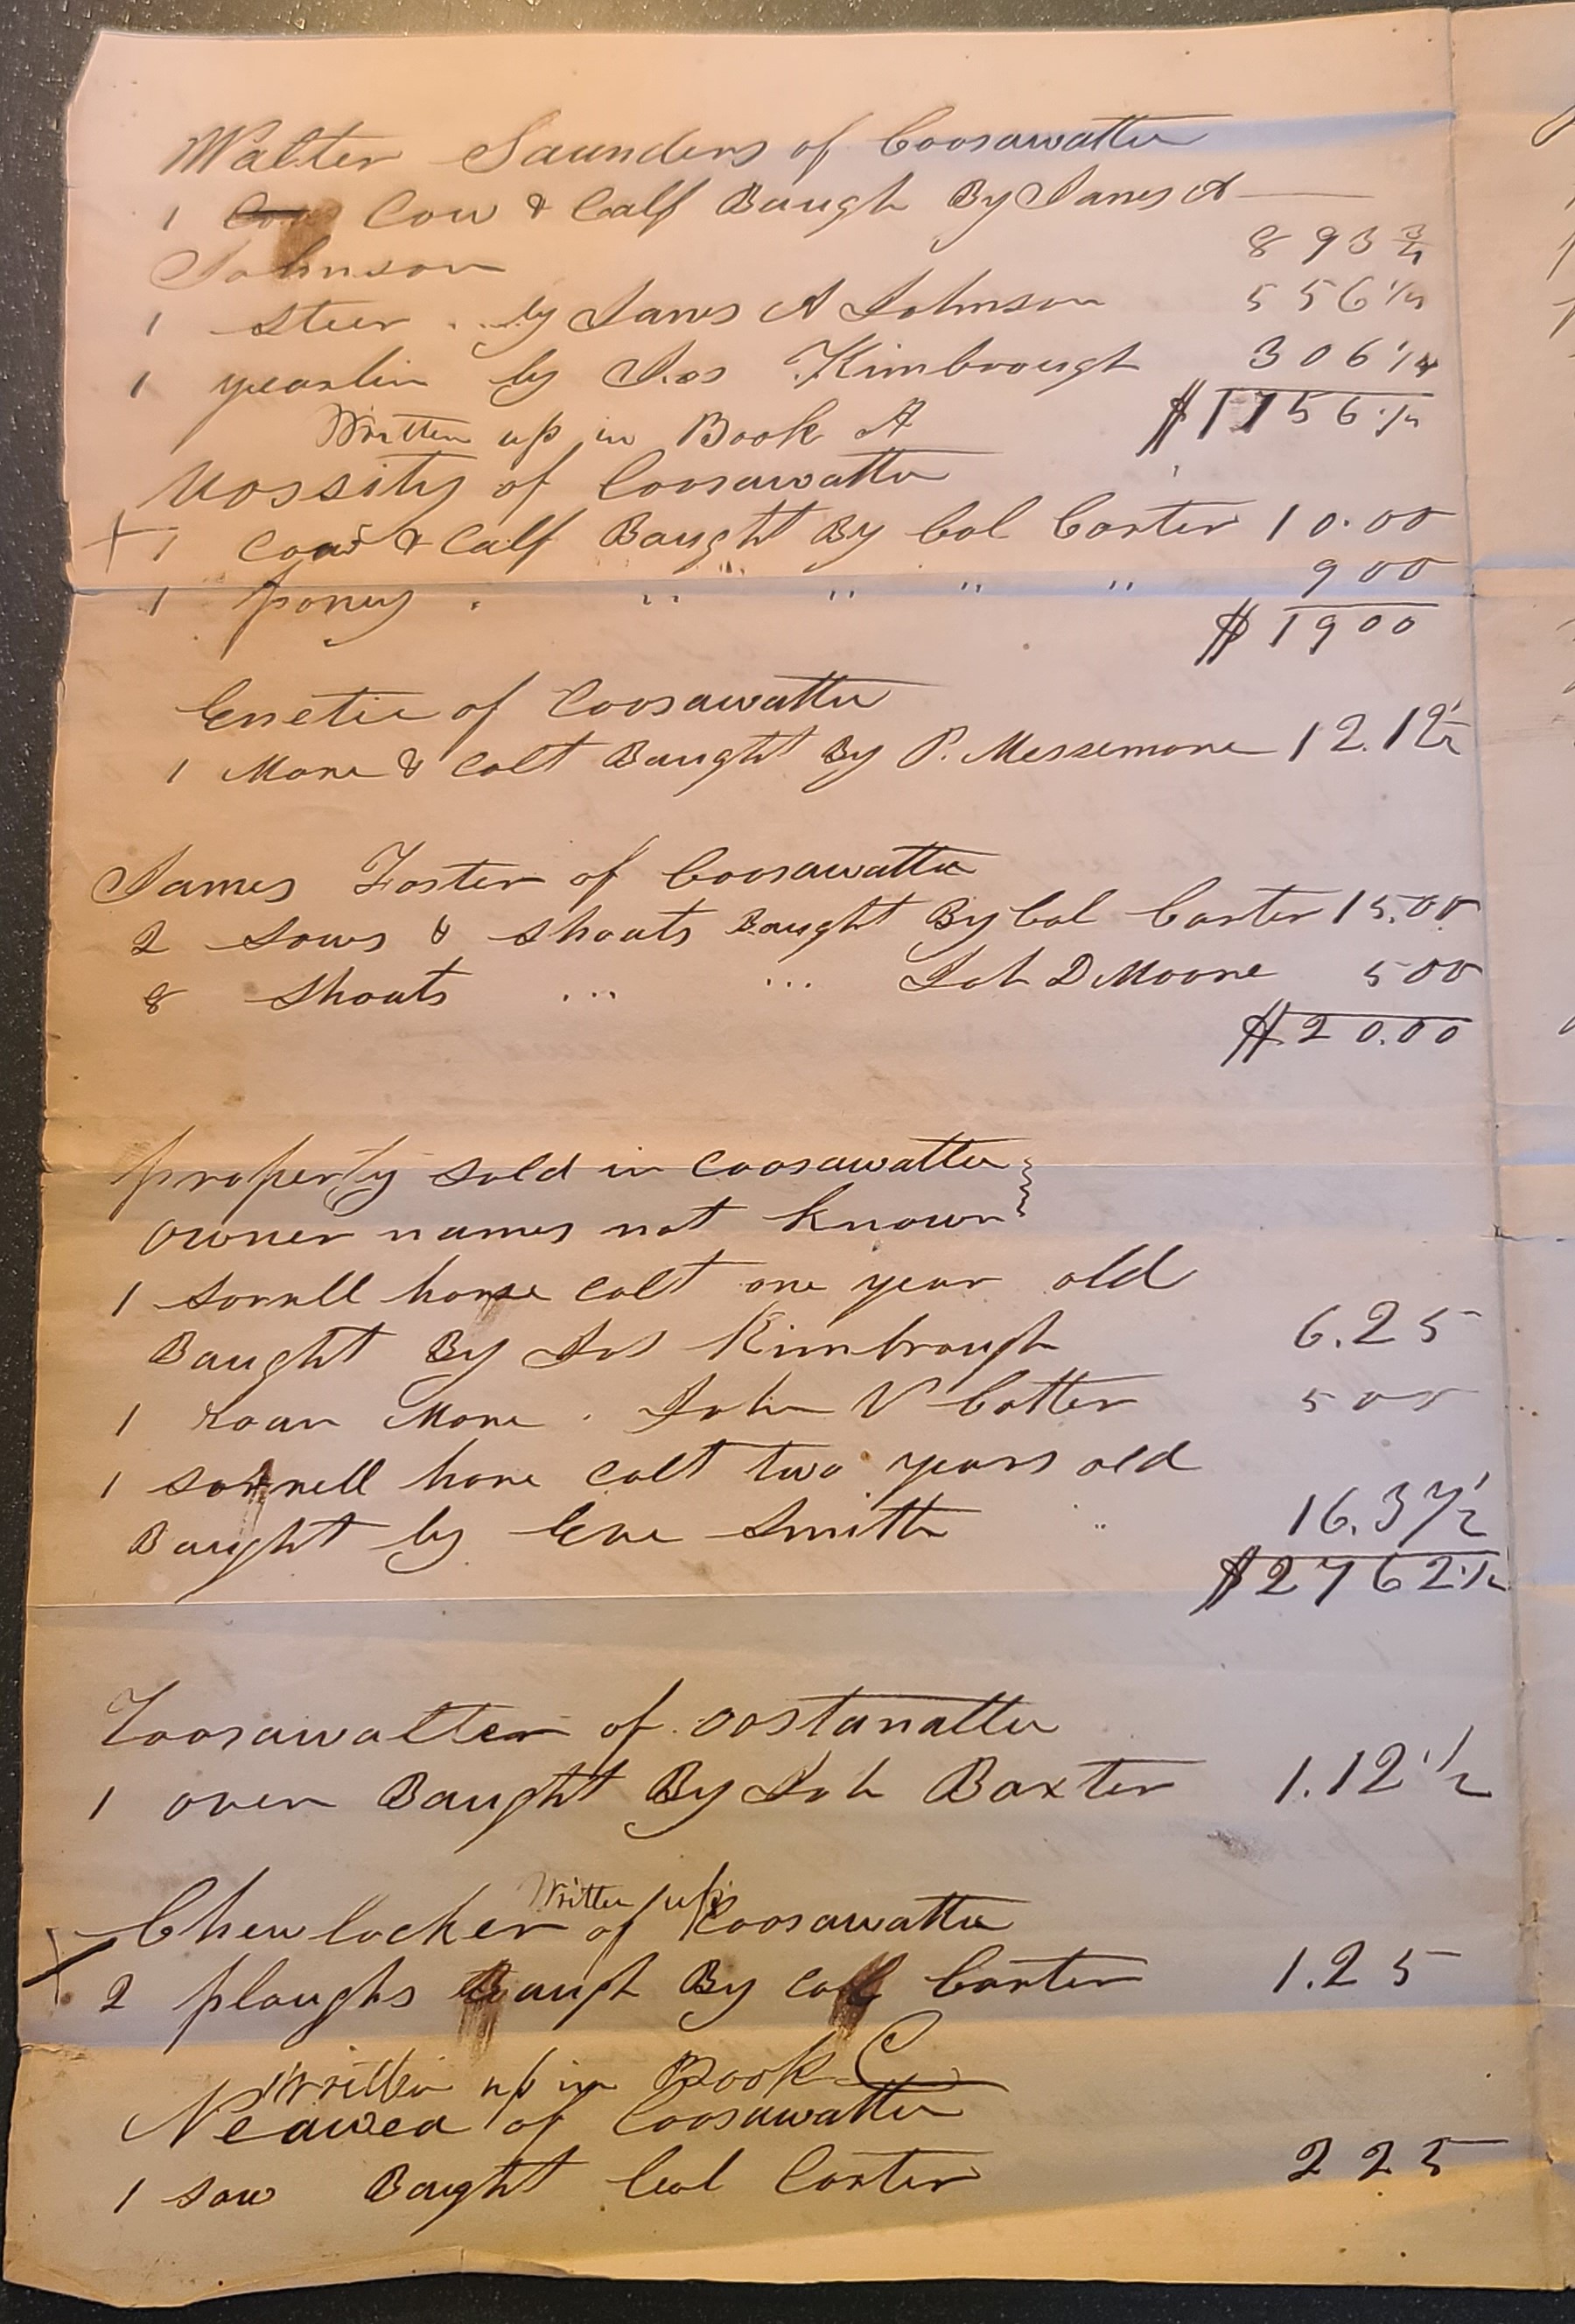 Walter Saunders of Coosawattee
1 Cow Cow & Calf Baugh By James A
Johnson 8 93 3/4
1 Steer . . by James A Johnson 5 56 1/4
1 yearlin by Jos Kimbrough 3 06 1/4
Written up in Book A $17 56 1/4
Nossity of Coosawattee
+ 1 Cow & Calf Baught By Col Carter 10.00
1 poney . " " " " 9 00
$19 00
Enetie of Coosawattee
1 Mare & Colt Baught By P. Messemore 12.12 1/2
James Foster of Coosawattee
2 Sows & Shoats Baught By Col Carter 15.00
8 Shoats ... ... Joh D Moore 5 00
$20.00
property sold in Coosawattee
owner names not known
1 Sorrell horse Colt one year old
Baught By Jos Kimbrough 6.25
1 Roan Mare . John V Cotter 5 00
1 Sorrell hore Colt two years old
Baught by Smith 16.37 1/2
$27 62 1/2
Toosawaltee of oostanattee
1 oven Baught By Joh Baxter 1.12 1/2
Written up
Chewlocker of Coosawattee
2 ploughs Baugh By Col Carter 1.25
Written up in Book C
Neawea of Coosawattee
1 Sow Baught Col Carter 2 25